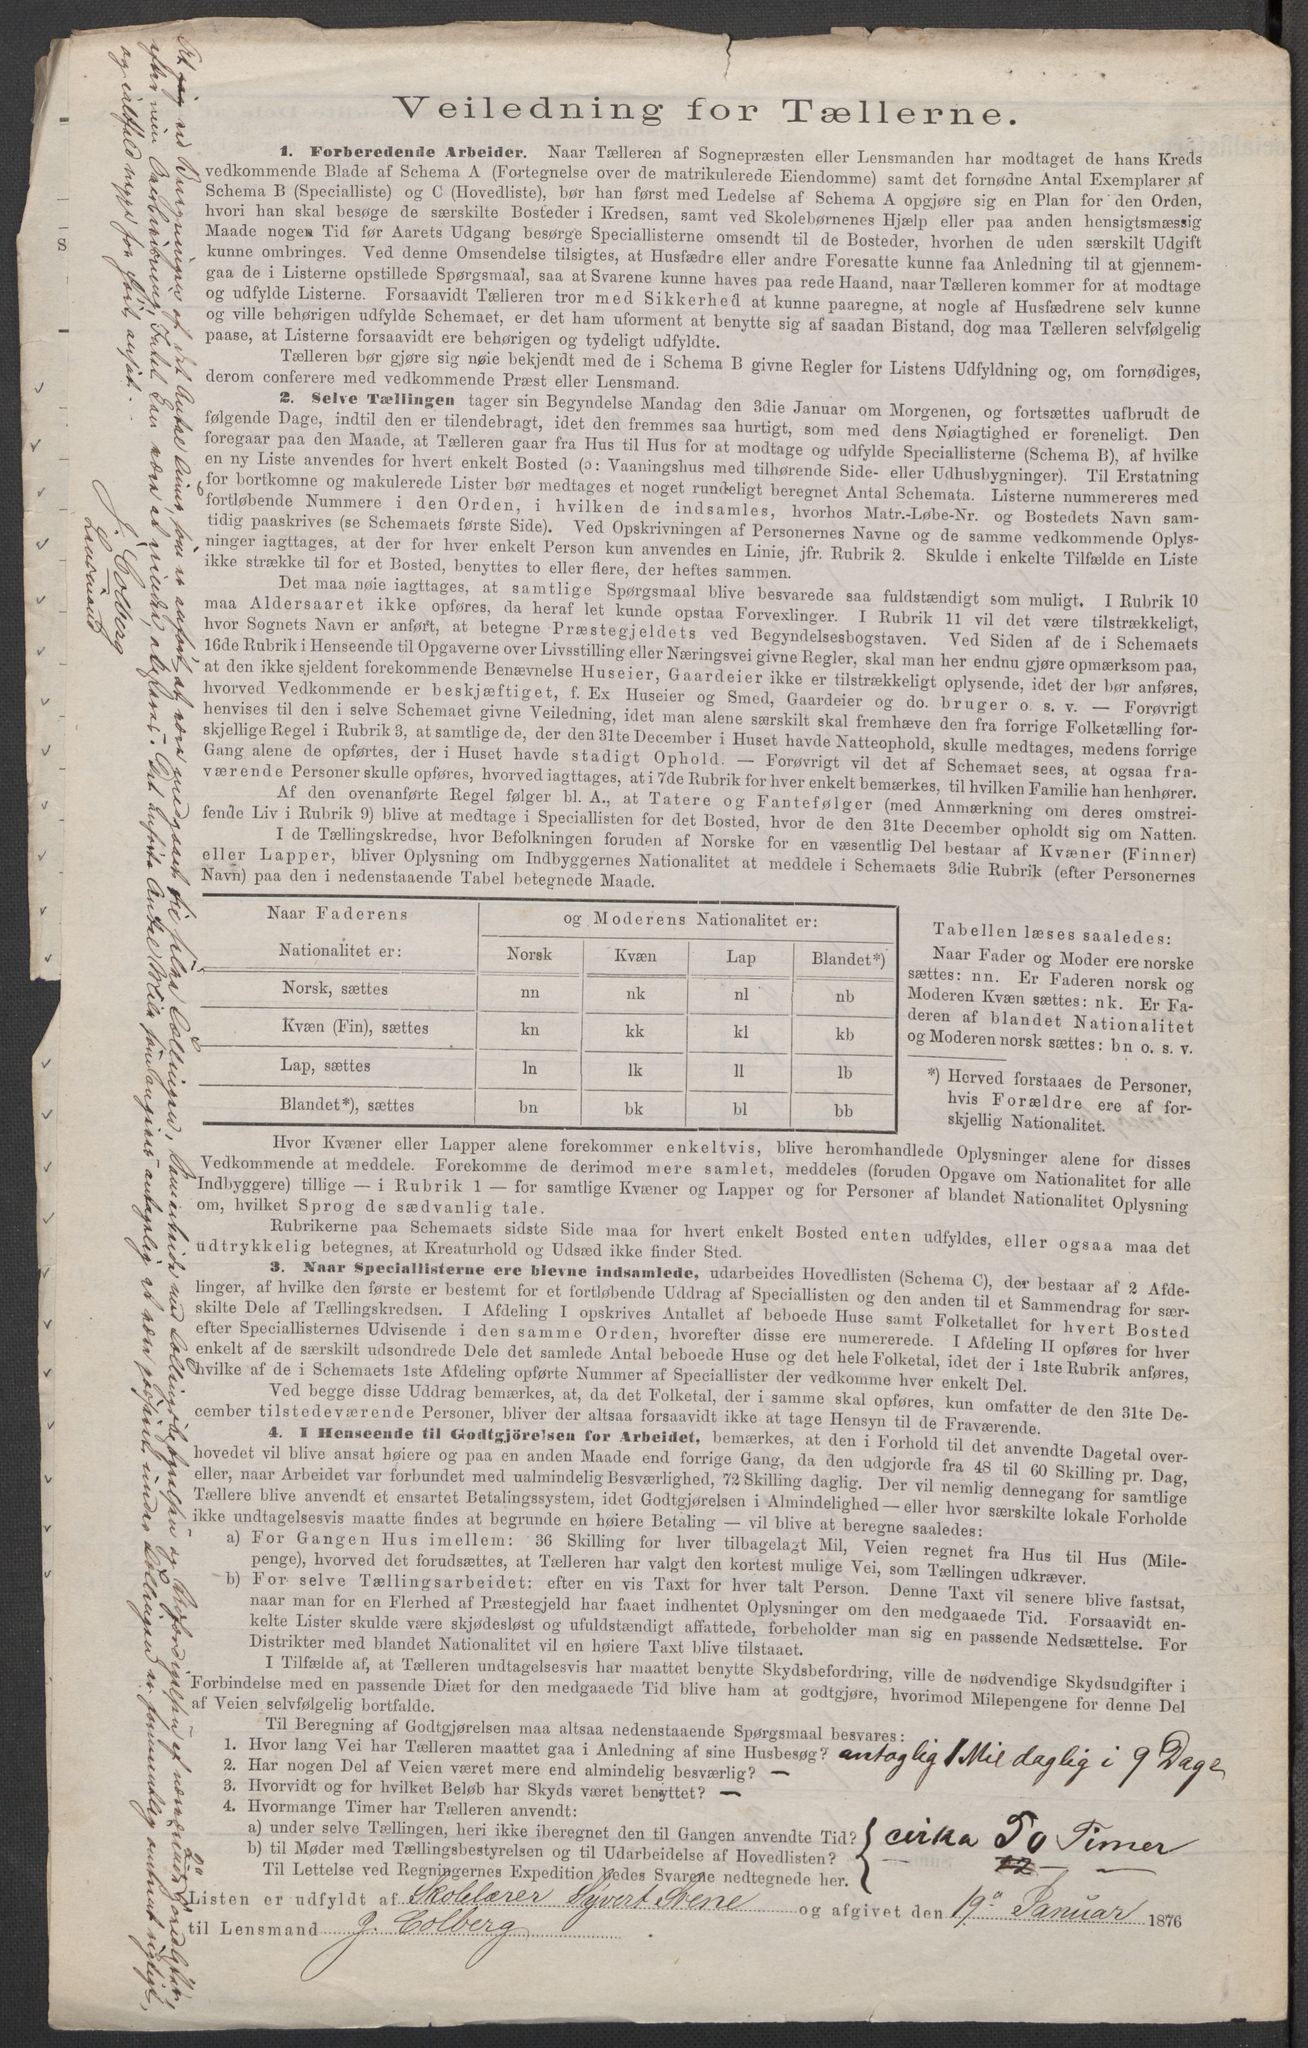 Veiledning for Tællerne.
1. Forberedende Arbeider. Naar Tælleren af Sognepræsten eller Lensmanden har modtaget de hans Kreds
vedkommende Blade af Schema A (Fortegnelse over de matrikulerede Eiendomme) samt det fornødne Antal Exemplarer af
Schema B (Specialliste) og C (Hovedliste), bør han først med Ledelse af Schema A opgjøre sig en Plan for den Orden,
hvori han skal besøge de særskilte Bosteder i Kredsen, samt ved Skolebørnenes Hjælp eller paa anden hensigtsmæssig
Maade nogen Tid før Aarets Udgang besørge Speciallisterne omsendt til de Bosteder, hvorhen de uden særskilt Udgift
kunne ombringes. Ved denne Omsendelse tilsigtes, at Husfædre eller andre Foresatte kunne faa Anledning til at gjennem-
gaa de i Listerne opstillede Spørgsmaal, saa at Svarene kunne haves paa rede Haand, naar Tælleren kommer for at modtage
og udfylde Listerne. Forsaavidt Tælleren tror med Sikkerhed at kunne paaregne, at nogle af Husfædrene selv kunne
og ville behørigen udfylde Schemaet, er det ham uforment at benytte sig af saadan Bistand, dog maa Tælleren selvfølgelig
paase, at Listerne forsaavidt ere behørigen og tydeligt udfyldte.
Tælleren bør gjøre sig nøie bekjendt med de i Schema B givne Regler for Listens Udfyldning og, om fornødiges,
derom conferere med vedkommende Præst eller Lensmand.
2. Selve Tællingen tager sin Begyndelse Mandag den 3die Januar om Morgenen, og fortsættes uafbrudt de
følgende Dage, indtil den er tilendebragt, idet den fremmes saa hurtigt, som med dens Nøiagtighed er foreneligt. Den
foregaar paa den Maade, at Tælleren gaar fra Hus til Hus for at modtage og udfylde Speciallisterne (Schema B), af hvilke
en ny Liste anvendes for hvert enkelt Bosted (ɔ: Vaaningshus med tilhørende Side- eller Udhusbygninger). Til Erstatning
for bortkomne og makulerede Lister bør medtages et noget rundeligt beregnet Antal Schemata. Listerne nummereres med
fortløbende Nummere i den Orden, i hvilken de indsamles, hvorhos Matr.-Løbe-Nr. og Bostedets Navn sam-
tidig paaskrives (se Schemaets første Side). Ved Opskrivningen af Personernes Navne og de samme vedkommende Oplys-
ninger iagttages, at der for hver enkelt Person kun anvendes en Linie, jfr. Rubrik 2. Skulde i enkelte Tilfælde en Liste
ikke strække til for et Bosted, benyttes to eller flere, der heftes sammen.
Det maa nøie iagttages, at samtlige Spørgsmaal blive besvarede saa fuldstændigt som muligt. I Rubrik 10
maa Aldersaaret ikke opføres, da heraf let kunde opstaa Forvexlinger. I Rubrik 11 vil det være tilstrækkeligt,
hvor Sognets Navn er anført, at betegne Præstegjeldets ved Begyndelsesbogstaven. Ved Siden af de i Schemaets
16de Rubrik i Henseende til Opgaverne over Livsstilling eller Næringsvei givne Regler, skal man her endnu gjøre opmærksom paa,
at den ikke sjeldent forekommende Benævnelse Huseier, Gaardeier ikke er tilstrækkeligt oplysende, idet der bør anføres,
hvorved Vedkommende er beskjæftiget, f. Ex Huseier og Smed, Gaardeier og do. bruger o. s. v. — Forøvrigt
henvises til den i selve Schemaet givne Veiledning, idet man alene særskilt skal fremhæve den fra forrige Folketælling for-
skjellige Regel i Rubrik 3, at samtlige de, der den 31te December i Huset havde Natteophold, skulle medtages, medens forrige
Gang alene de opførtes, der i Huset havde stadigt Ophold. — Forøvrigt vil det af Schemaet sees, at ogsaa fra-
værende Personer skulle opføres, hvorved iagttages, at i 7de Rubrik for hver enkelt bemærkes, til hvilken Familie han henhører.
Af den ovenanførte Regel følger bl. A., at Tatere og Fantefølger (med Anmærkning om deres omstrei-
fende Liv i Rubrik 9) blive at medtage i Speciallisten for det Bosted, hvor de den 31te December opholdt sig om Natten.
I de Tællingskredse, hvor Befolkningen foruden af Norske for en væsentlig Del bestaar af Kvæner (Finner)
eller Lapper, bliver Oplysning om Indbyggernes Nationalitet at meddele i Schemaets 3die Rubrik (efter Personernes
Navn) paa den i nedenstaaende Tabel betegnede Maade.
Naar Faderens og Moderens Nationalitet er:
Nationalitet er: Norsk Kvæn Lap Blandet*)
Norsk, sættes nn nk nl nb
Kvæn (Fin), sættes kn kk kl kb
Lap, sættes ln lk ll lb
Blandet*), sættes bn bk bl bb
Tabellen læses saaledes:
Naar Fader og Moder ere norske
sættes: nn. Er Faderen norsk og
Moderen Kvæn sættes: nk. Er Fa-
deren af blandet Nationalitet
og Moderen norsk sættes: bn o. s. v.
*) Herved forstaaes de Personer,
hvis Forældre ere af for-
skjellig Nationalitet.
Hvor Kvæner eller Lapper alene forekommer enkeltvis, blive heromhandlede Oplysninger alene for disses
Vedkommende at meddele. Forekomme de derimod mere samlet, meddeles (foruden Opgave om Nationalitet for alle
Indbyggere) tillige — i Rubrik 1 — for samtlige Kvæner og Lapper og for Personer af blandet Nationalitet Oplysning
om, hvilket Sprog de sædvanlig tale.
Rubrikerne paa Schemaets sidste Side maa for hvert enkelt Bosted enten udfyldes, eller ogsaa maa det
udtrykkelig betegnes, at Kreaturhold og Udsæd ikke finder Sted.
3. Naar Speciallisterne ere blevne indsamlede, udarbeides Hovedlisten (Schema C), der bestaar af 2 Afde-
linger, af hvilke den første er bestemt for et fortløbende Uddrag af Speciallisten og den anden til et Sammendrag for sær-
skilte Dele af Tællingskredsen. I Afdeling I opskrives Antallet af beboede Huse samt Folketallet for hvert Bosted
efter Speciallisternes Udvisende i den samme Orden, hvorefter disse ere numererede. I Afdeling II opføres for hver
enkelt af de særskilt udsondrede Dele det samlede Antal beboede Huse og det hele Folketal, idet der i 1ste Rubrik anføres,
hvilke af de i Schemaets 1ste Afdeling opførte Nummer af Speciallister der vedkomme hver enkelt Del.
Ved begge disse Uddrag bemærkes, at, da det Folketal, der i samme skal opføres, kun omfatter de den 31te De-
cember tilstedeværende Personer, bliver der altsaa forsaavidt ikke at tage Hensyn til de Fraværende.
4. I Henseende til Godtgjörelsen for Arbeidet, bemærkes, at den i Forhold til det anvendte Dagetal over-
hovedet vil blive ansat høiere og paa en anden Maade end forrige Gang, da den udgjorde fra 48 til 60 Skilling pr. Dag,
eller, naar Arbeidet var forbundet med ualmindelig Besværlighed, 72 Skilling daglig. Der vil nemlig dennegang for samtlige
Tællere blive anvendt et ensartet Betalingssystem, idet Godtgjørelsen i Almindelighed — eller hvor særskilte lokale Forholde
ikke undtagelsesvis maatte findes at begrunde en høiere Betaling — vil blive at beregne saaledes:
a) For Gangen Hus imellem: 36 Skilling for hver tilbagelagt Mil, Veien regnet fra Hus til Hus (Mile-
penge), hvorved det forudsættes, at Tælleren har valgt den kortest mulige Vei, som Tællingen udkræver.
b) For selve Tællingsarbeidet: efter en vis Taxt for hver talt Person. Denne Taxt vil senere blive fastsat,
naar man for en Flerhed af Præstegjeld har faaet indhentet Oplysninger om den medgaaede Tid. Forsaavidt en-
kelte Lister skulde være skjødesløst og ufuldstændigt affattede, forbeholder man sig en passende Nedsættelse. For
Distrikter med blandet Nationalitet vil en høiere Taxt blive tilstaaet.
I Tilfælde af, at Tælleren undtagelsesvis har maattet benytte Skydsbefordring, ville de nødvendige Skydsudgifter i
Forbindelse med en passende Diæt for den medgaaede Tid blive ham at godtgjøre, hvorimod Milepengene for denne Del
af Veien selvfølgelig bortfalde.
Til Beregning af Godtgjørelsen maa altsaa nedenstaaende Spørgsmaal besvares:
1. Hvor lang Vei har Tælleren maattet gaa i Anledning af sine Husbesøg? antaglig 1 Mil daglig i 9 Dage
2. Har nogen Del af Veien været mere end almindelig besværlig? —
3. Hvorvidt og for hvilket Beløb har Skyds været benyttet? —
4. Hvormange Timer har Tælleren anvendt:
a) under selve Tællingen, heri ikke iberegnet den til Gangen anvendte Tid? cirka 50 Timer
b) til Møder med Tællingsbestyrelsen og til Udarbeidelse af Hovedlisten? —
Til Lettelse ved Regningernes Expedition bedes Svarene nedtegnede her.
Listen er udfyldt af Skolelærer Syvert Svene og afgivet den 19de Januar 1876
til Lensmand J. Colberg
J. Colberg
Lensmand